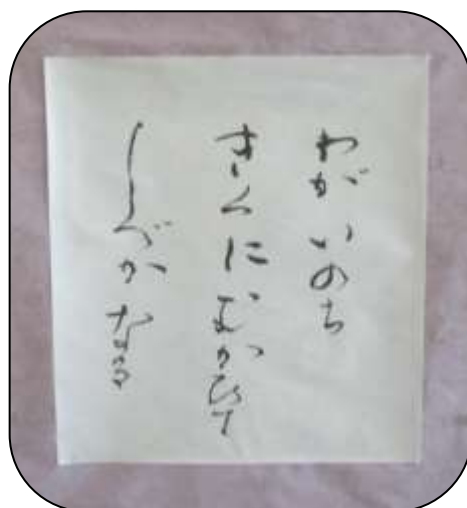 わがいのち
きくにむかひて
しづかなる